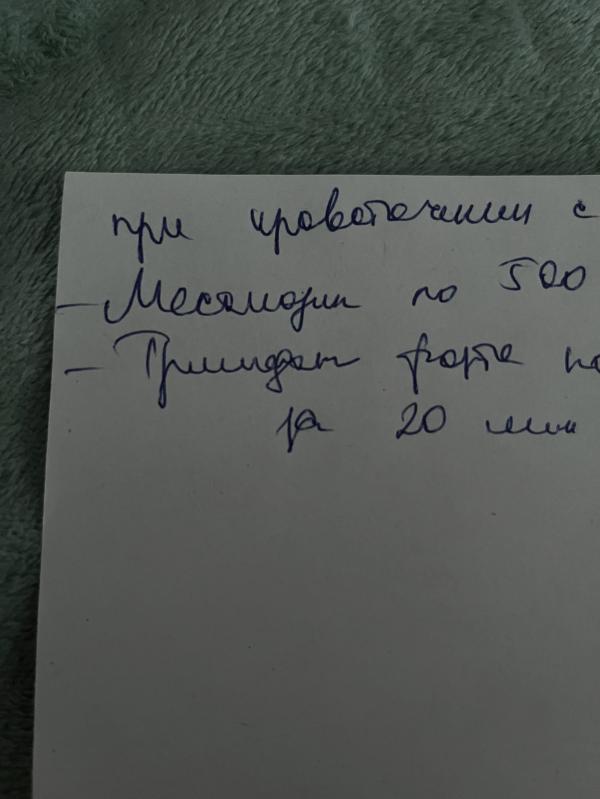 при кровотечении с
- Месалазин по 500
- Тримедат форте по
за 20 мин